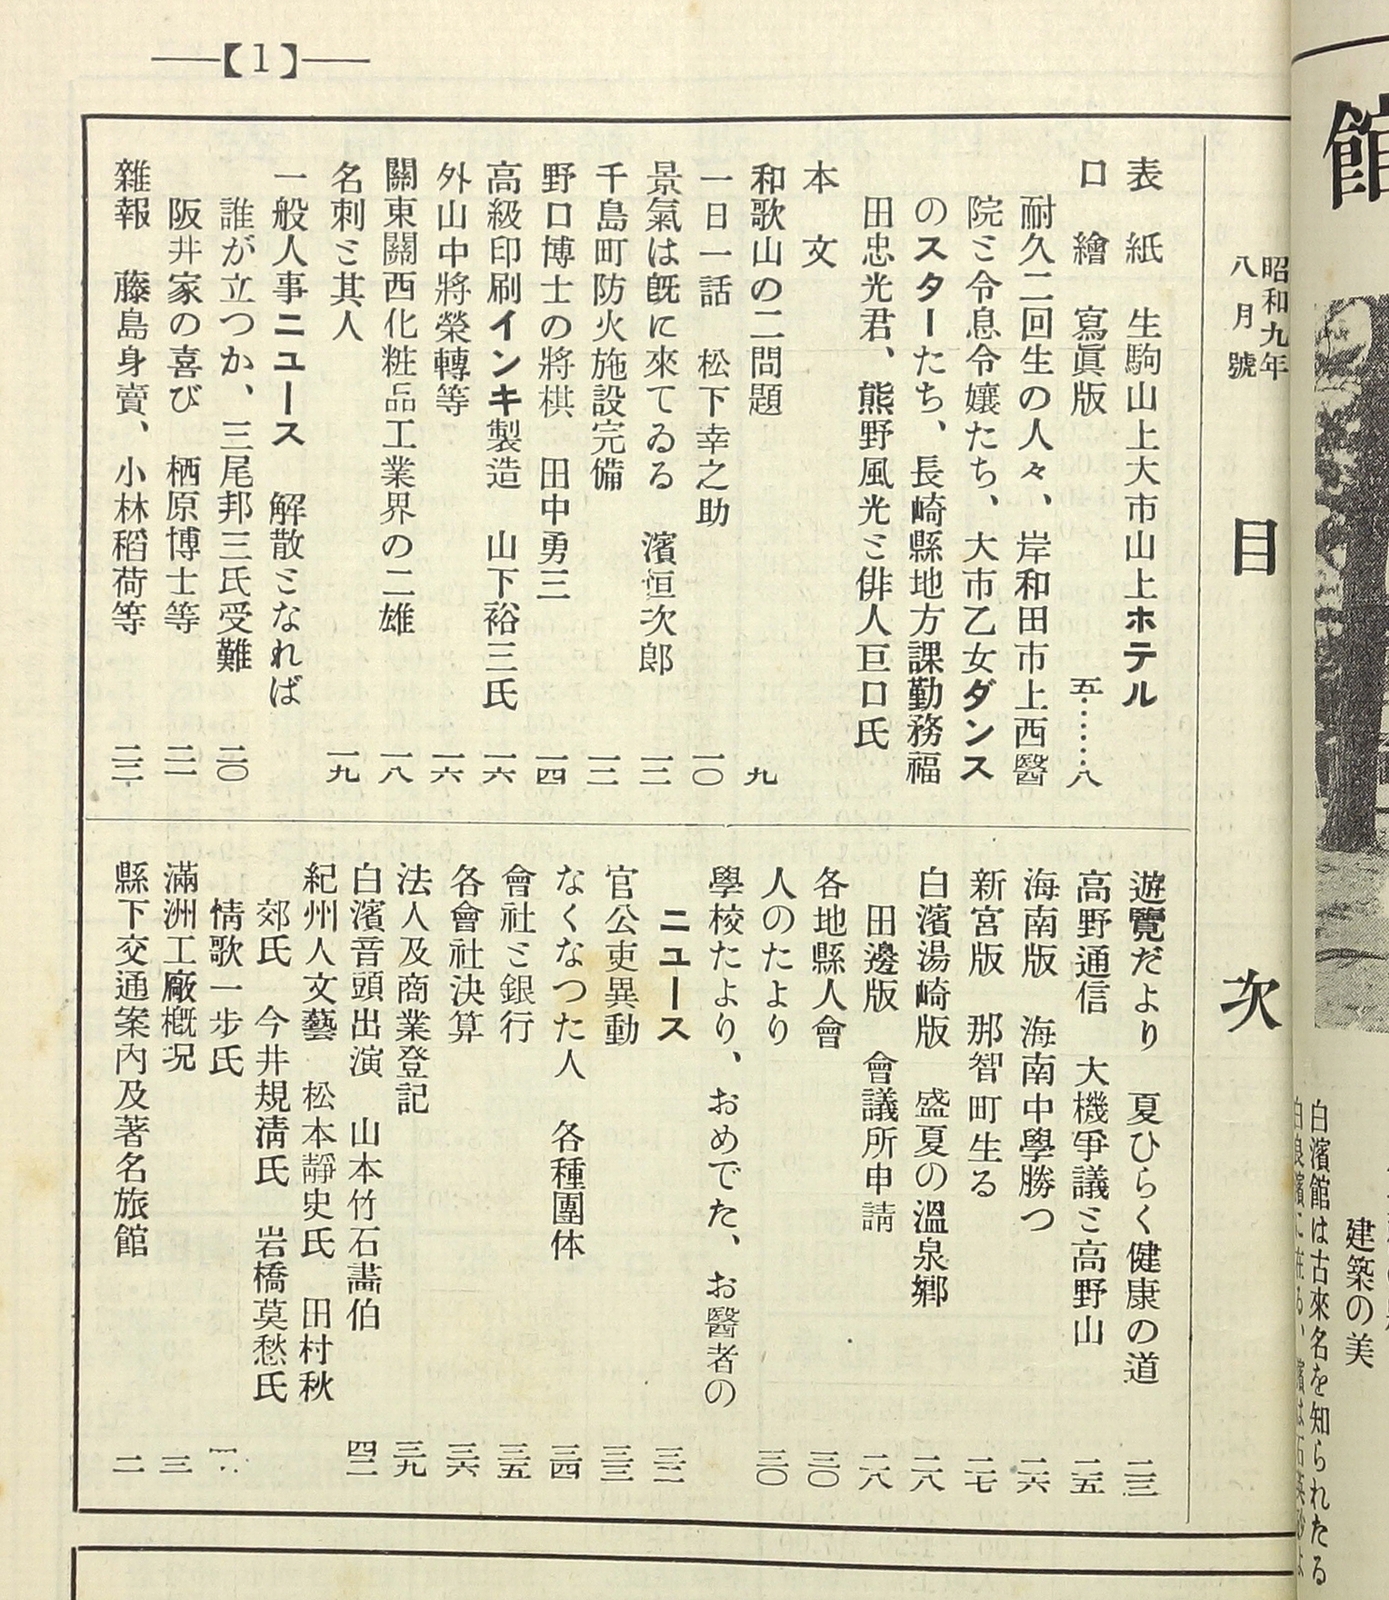 【1】
昭和九年
八月號
目次
表紙　生駒山上大市山上ホテル
口繪　寫眞版　五……八
耐久二回生の人々、岸和田市上西醫
院ミ令息令孃たち、大市乙女ダンス
のスターたち、長崎縣地方課勤務福
田忠光君、熊野風光ミ俳人巨口氏
本文
和歌山の二問題　九
一日一話　松下幸之助　一〇
景氣は旣に來てゐる　濱恒次郎　一二
千島町防火施設完備　一二
野口博士の將棋　田中勇三　一四
高級印刷インキ製造　山下裕三氏　一六
外山中將榮轉等　一六
關東關西化粧品工業界の二雄　一八
名刺ミ其人　一九
一般人事ニュース　解散ミなれば
誰が立つか、三尾邦三氏受難　二〇
阪井家の喜び　栖原博士等　二一
雜報　藤島身賣、小林稻荷等　二二
遊覽だより　夏ひらく健康の道　二三
高野通信　大機爭議ミ高野山　二五
海南版　海南中學勝つ　二六
新宮版　那智町生る　二七
白濱湯崎版　盛夏の溫泉鄕　二八
田邊版　會議所申請　二八
各地縣人會　三〇
人のたより　三〇
學校たより、おめでた、お醫者の
ニュース　三二
官公吏異動　三三
なくなつた人　各種團体　三四
會社ミ銀行　三五
各會社決算　三六
法人及商業登記　三九
白濱音頭出演　山本竹石畵伯　四二
紀州人文藝　松本靜史氏　田村秋
郊氏　今井規淸氏　岩橋莫愁氏
情歌一步氏
滿洲工廠槪况　三
縣下交通案內及著名旅館　二
館
建築の美
白濱館は古來名を知られたる